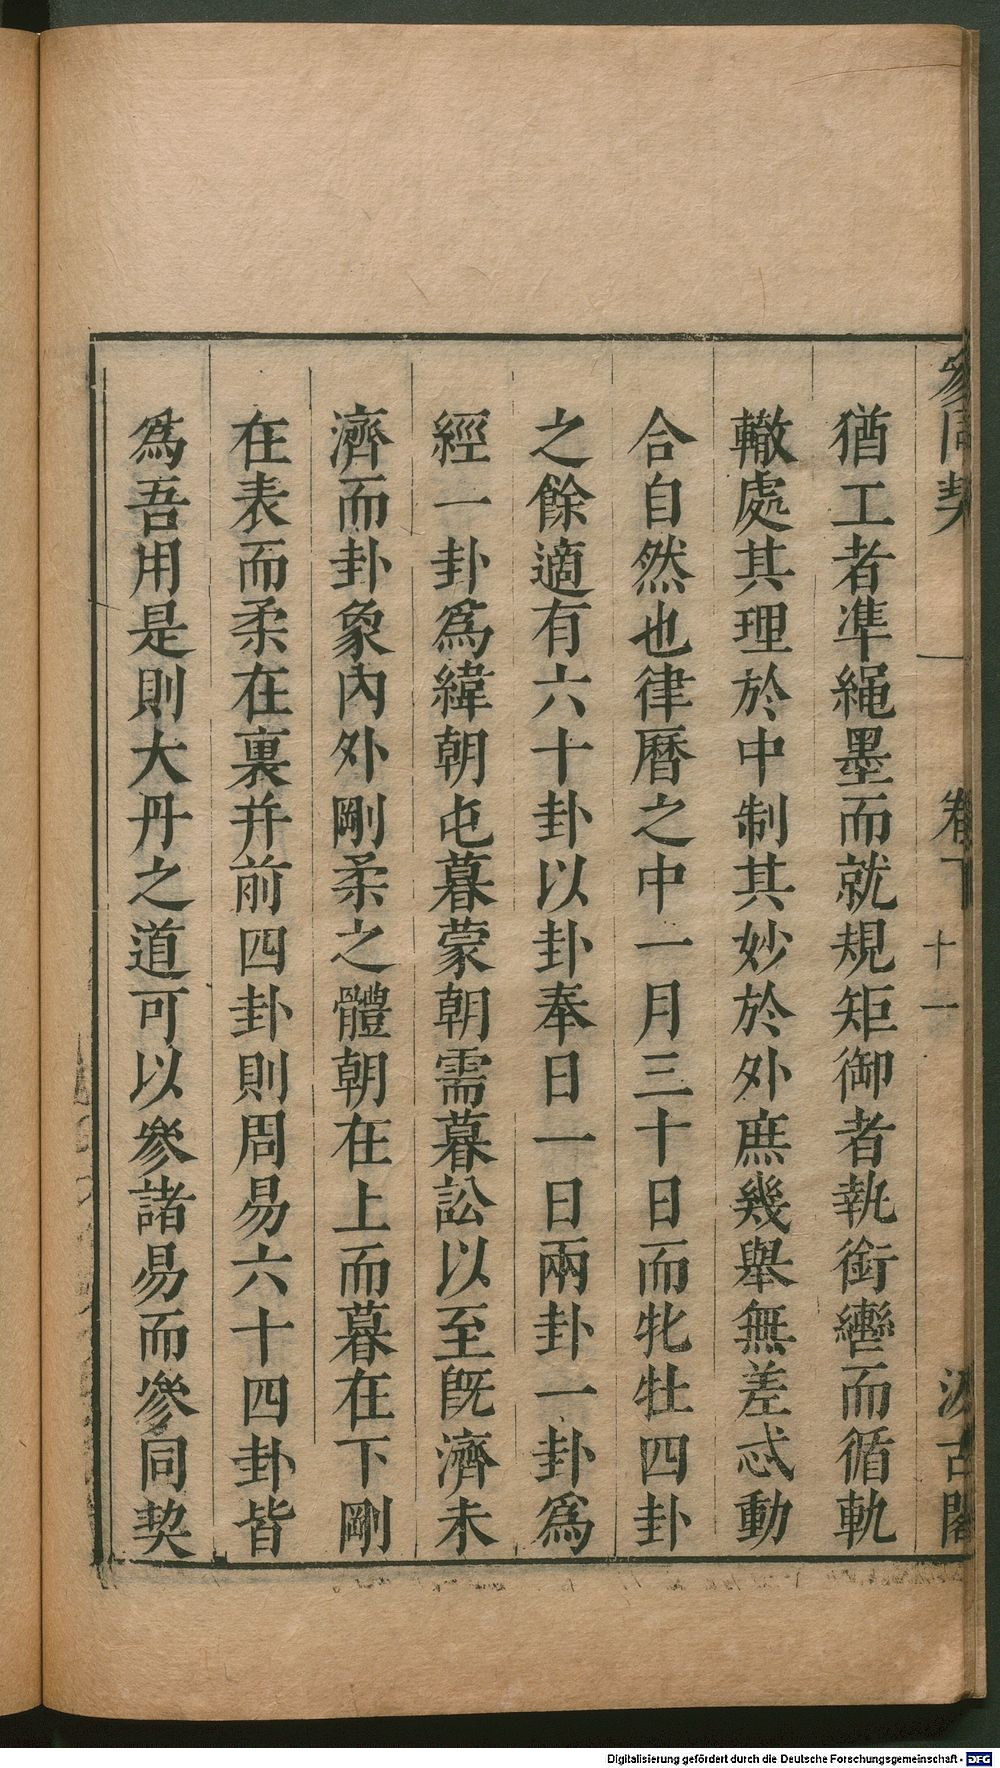 參同契 卷下 十一 汲古閣
猶工者準繩墨而就規矩御者執銜轡而循軌
轍處其理於中制其妙於外庶幾舉無差忒動
合自然也律曆之中一月三十日而牝牡四卦
之餘適有六十卦以卦奉日一日兩卦一卦爲
經一卦爲緯朝屯暮蒙朝需暮訟以至旣濟未
濟而卦象內外剛柔之體朝在上而暮在下剛
在表而柔在裏并前四卦則周易六十四卦皆
爲吾用是則大丹之道可以參諸易而參同契
Digitalisierung gefördert durch die Deutsche Forschungsgemeinschaft - DFG